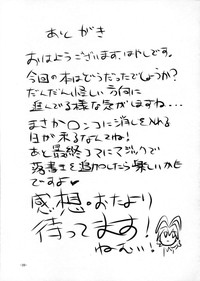 あとがき
おはようございます、はやしです。
今回の本はどうだったでしょうか?
だんだん怪しい方向に
進んでる様な気がほすね…
まさか〇ンコに消しを入れる
日が来るなんてね!
あと最終コマにマジックで
落書きを追加したら楽しいかも
ですよ♥
感想・おたより
待ってます!
ねむい!